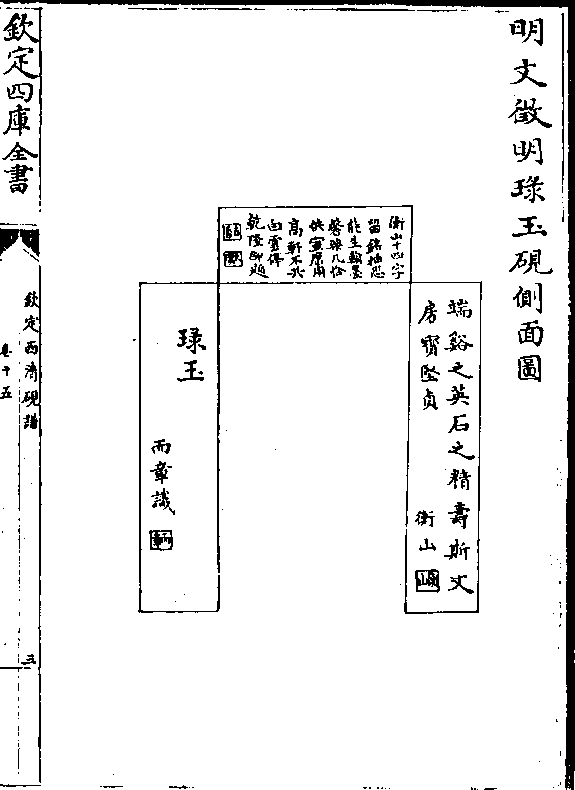 明文徵明琭玉硯側面圖
端谿之英石之精壽斯文
房寶堅貞
衡山
衡山十四字
留銘抽思
能生翰墨
馨棐几恰
供用
高軒不
白雲停
乾隆御題
琭玉
而章識
欽定四庫全書
欽定西清硯譜
卷十五
三